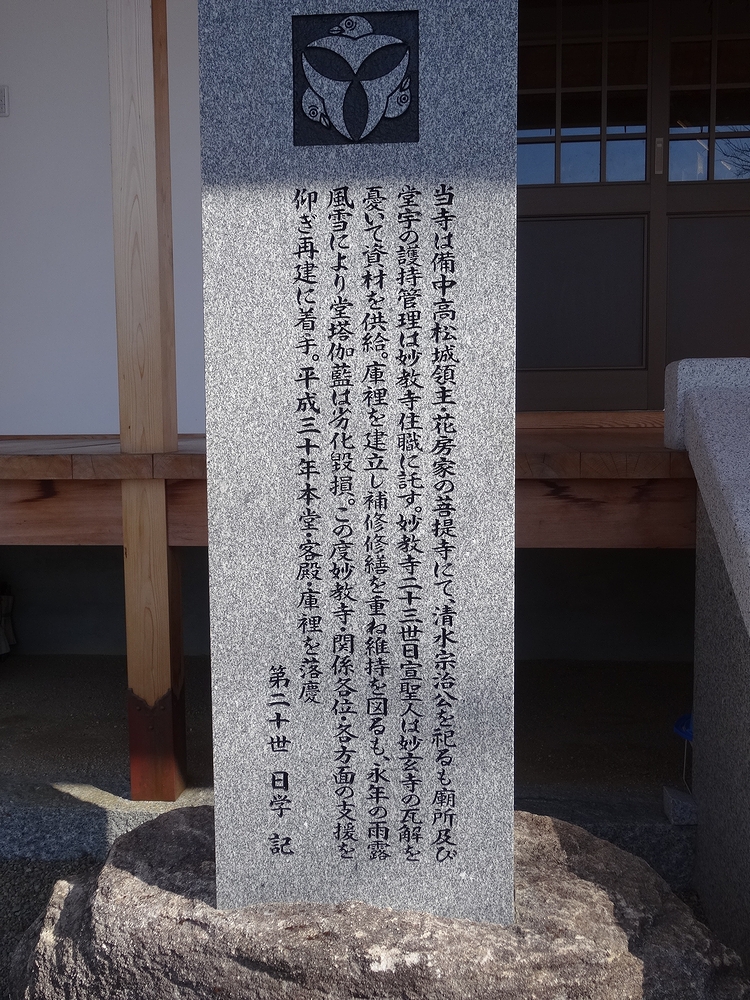 当寺は備中高松城領主・花房家の菩提寺にて、清水宗治公を祀るも廟所及び
堂宇の護持管理は妙教寺住職に託す。妙教寺二十三世日宣聖人は妙玄寺の瓦解を
憂いて資材を供給。庫裡を建立し補修修繕を重ね維持を図るも、永年の雨露
風雪により堂塔伽藍は劣化毀損。この度妙教寺・関係各位・各方面の支援を
仰ぎ再建に着手。平成三十年本堂・客殿・庫裡を落慶
第二十世 日学 記